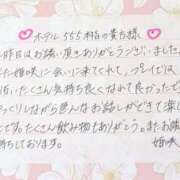 ホテル555 本館の貴方様
昨日はお誘い頂きありがとうございました
また婚咲に会いに来てくれて、プレイでは
たくさん気持ち良くなれて良かったで
ゆっくりしながら色んなお話しができて楽し
たくさん飲み物もありがとう。また
待ちしております。
婚咲